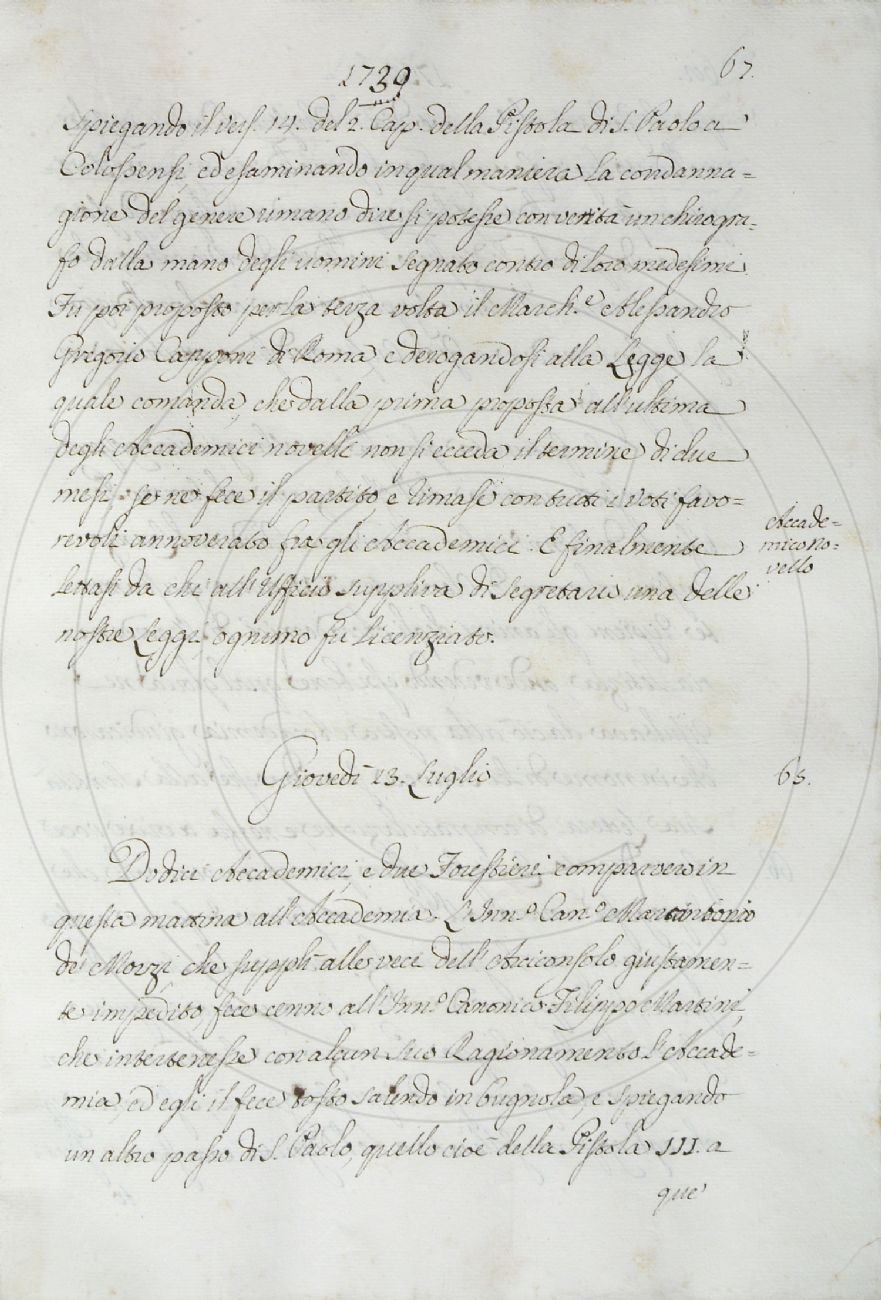 1739
67.
spiegando il vers. 14. del 2. Cap. della Pistola di S. Paolo a
Colossensi, ed esaminando in qual maniera la condanna=
gione del genere umano dire si potesse con verità un chirogra=
fo dalla mano degli uomini segnato contro di loro medesimi.
Fu poi proposto per la terza volta il March.e Alessandro
Gregorio Capponi di Roma e derogandosi alla Legge la
quale comanda, che dalla prima proposta all'ultima
degli Accademici novelli non si ecceda il termine di due
mesi, se ne fece il partito, e rimase con tutti i voti favo=
revoli annoverato fra gli Accademici. E finalmente
Accade=
mico no=
vello
lettasi da chi all'Ufficio suppliva di Segretario una delle
nostre Leggi ognuno fu licenziato.
Giovedì 23. Luglio
68.
Dodici Accademici, e due Forestieri comparvero in
questa mattina all'Accademia. L'Inn.o Can.o Marcantonio
de' Mozzi che supplì alle veci dell'Arciconsolo giustamen=
te impedito fece cenno all'Inn.o Canonico Filippo Martini,
che intertenesse con alcun suo Ragionamento l'Accade=
mia, ed egli il fece tosto salendo in bugnola, e spiegando
un altro passo di S. Paolo, quello cioè della Pistola III. a
que'